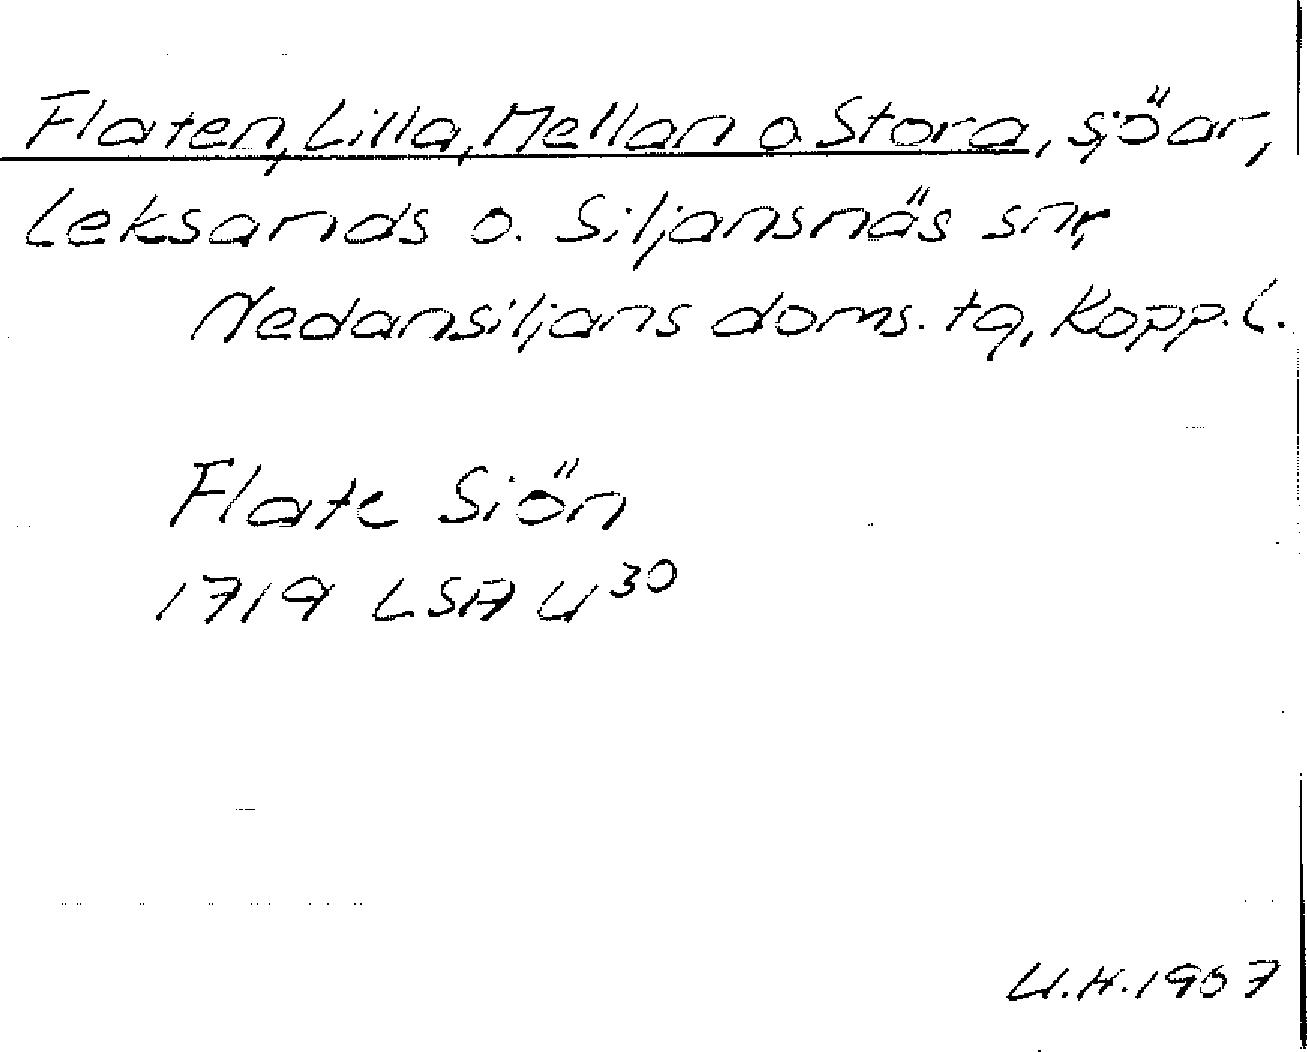 Flaten, Lilla, Mellan o Stora, sjöar,
Leksands o. Siljansnäs snr,
Nedansiljans doms. tg, Kopp. l.
Flate Siön
1719 LSA U30
U.H. 1957